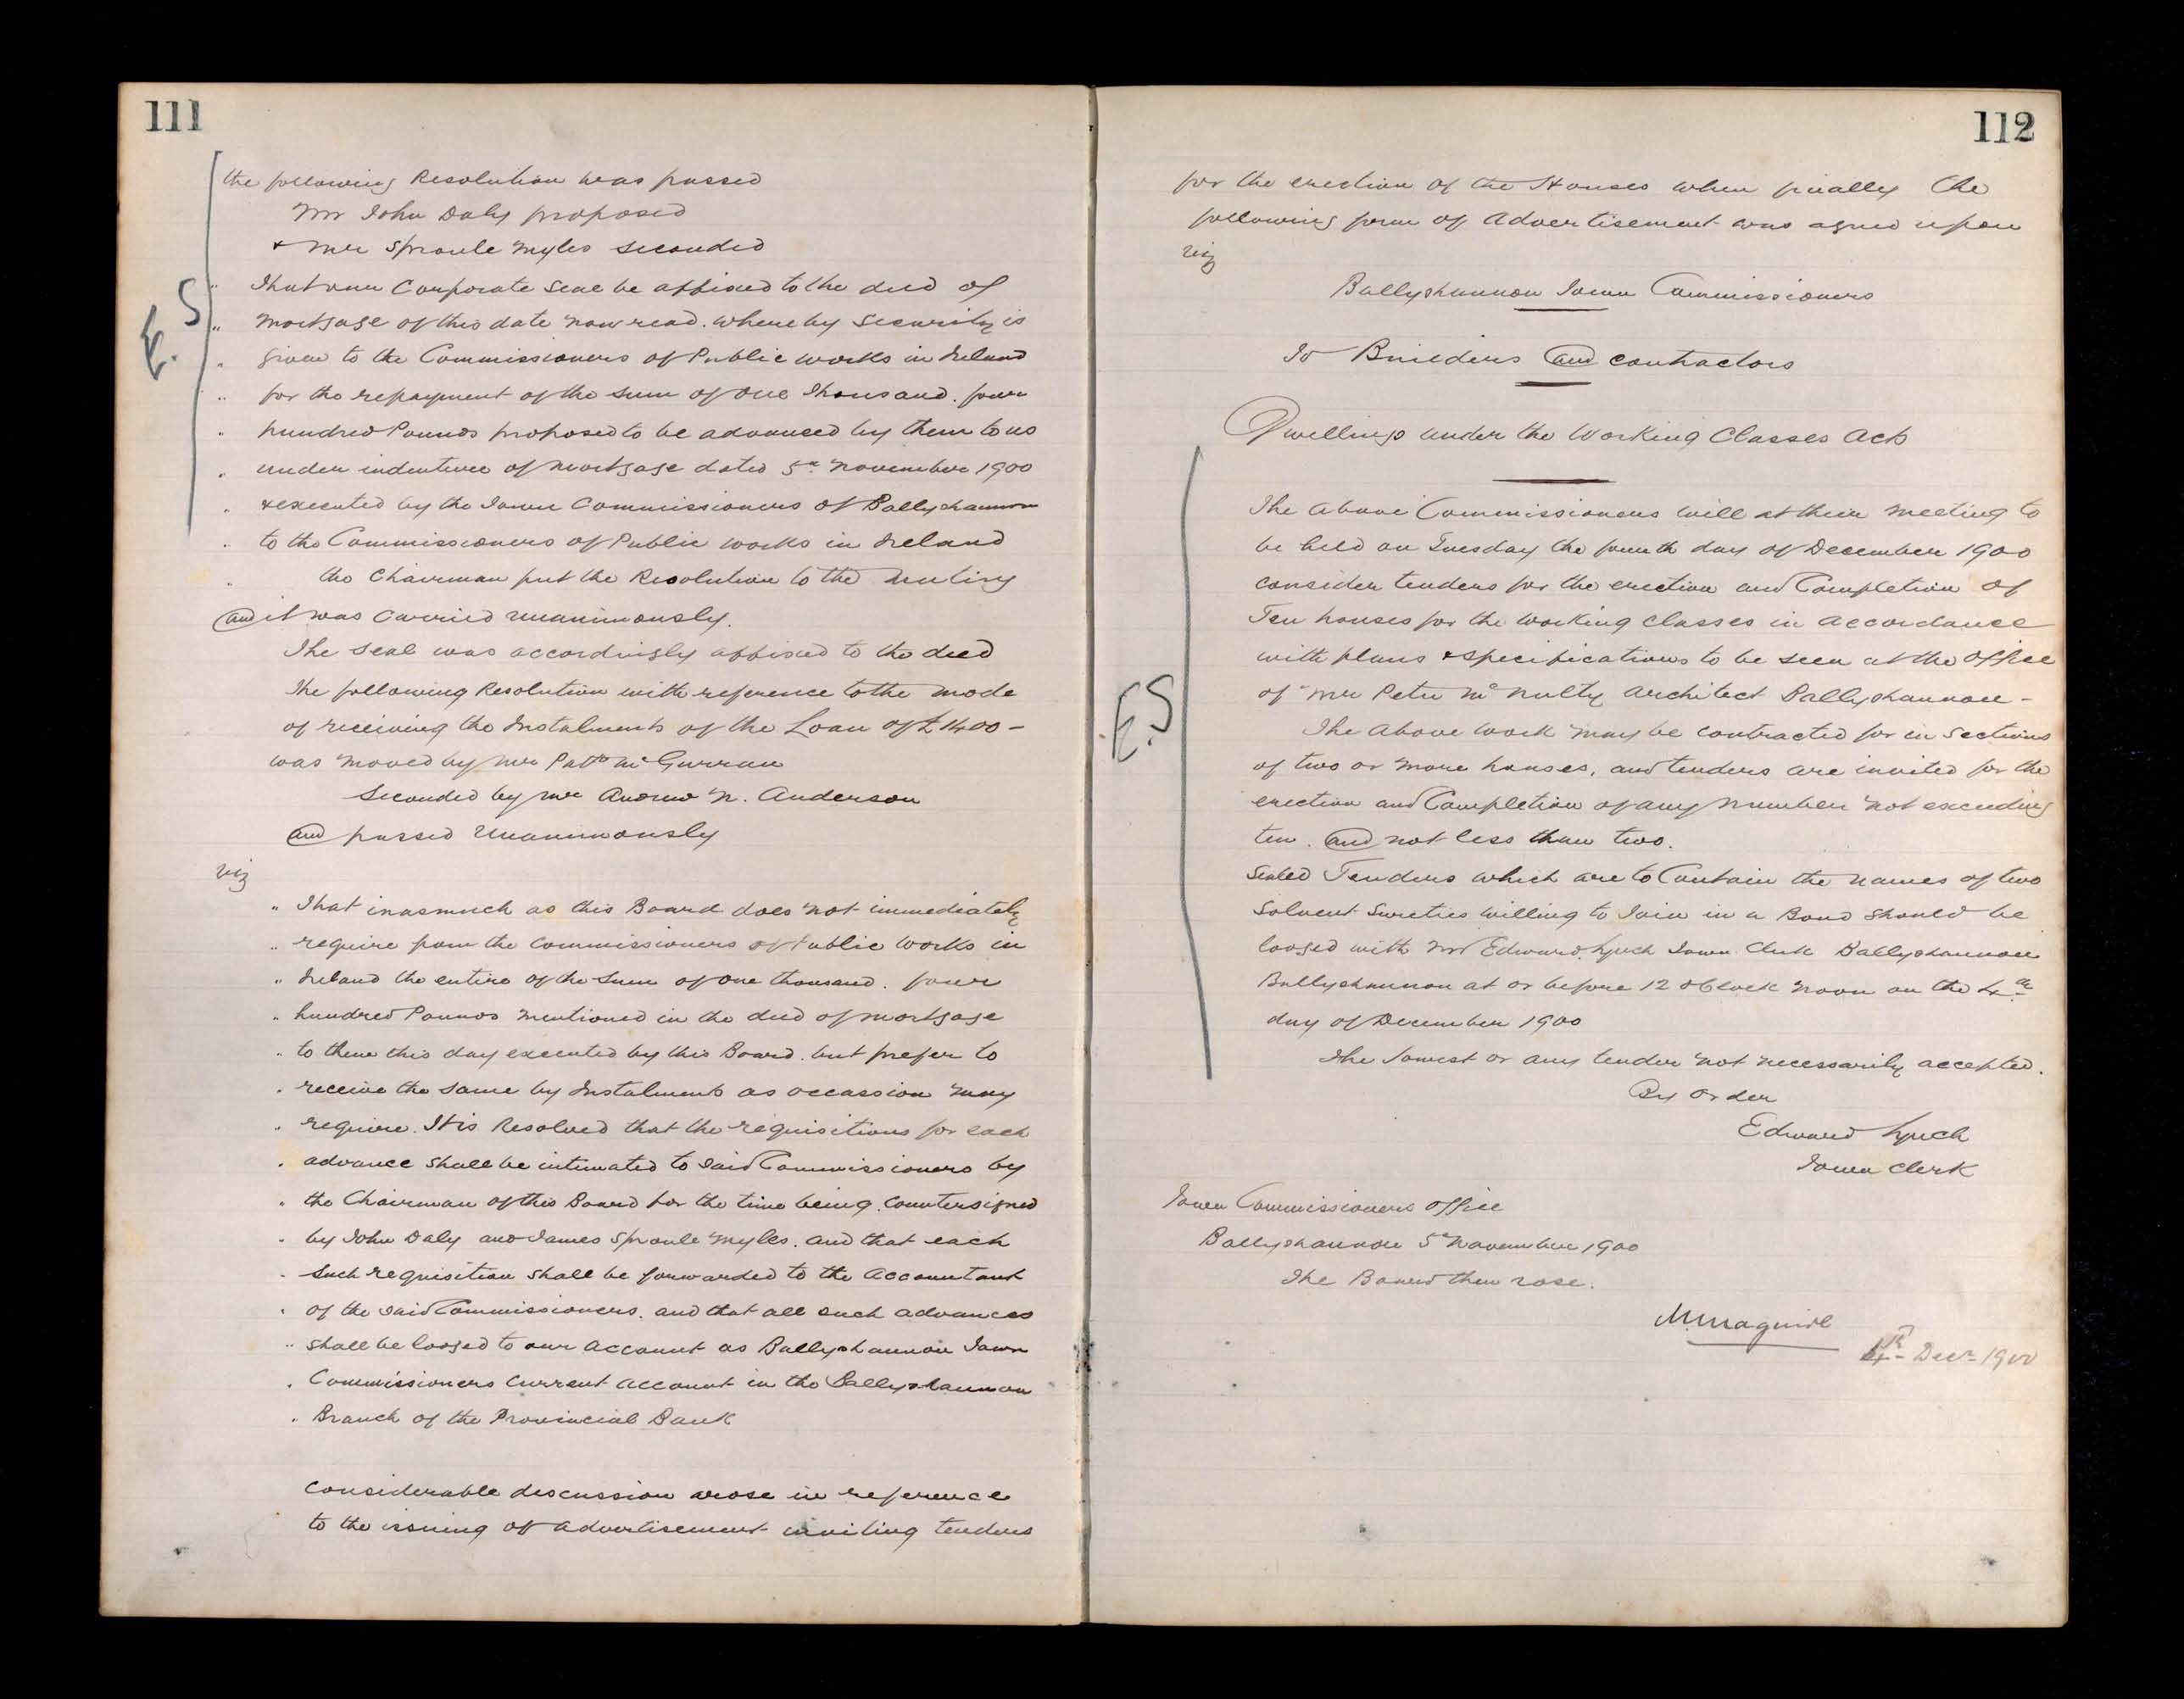 111
the following Resolution was passed
Mr John Daly proposed
& Mr Sproule Myles seconded
E.S
" That our Corporate Seal be affixed to the deed of
" Mortgage of this date now read. whereby Security is
" given to the Commissioners of Public Works in Ireland
" for the repayment of the sum of One Thousand. four
" hundred Pounds proposed to be advanced by them to us
" under indenture of Mortgage dated 5th November 1900
" & executed by the Town Commissioners of Ballyshannon
" to the Commissioners of Public Works in Ireland
" the Chairman put the Resolution to the Meeting
and it was Carried Unanimously.
The Seal was accordingly affixed to the deed
The following Resolution with reference to the mode
of receiving the Instalments of the Loan of £1400-
was moved by Mr Patk McGurran
Seconded by Mr Andrew N. Anderson
and passed Unanimously
viz
" That inasmuch as this Board does not immediately
" require from the Commissioners of Public Works in
" Ireland the entire of the Sum of One thousand. four
" hundred Pounds mentioned in the deed of Mortgage
" to them this day executed by this Board. but prefer to
" receive the same by Instalments as occassion may
" require. It is Resolved that the requisitions for each
" advance shall be intimated to said Commissioners by
" the Chairman of this Board for the time being. Countersigned
" by John Daly and James Sproule Myles. and that each
" such requisition shall be forwarded to the Accountant
" of the said Commissioners. and that all such advances
" shall be lodged to our Account as Ballyshannon Town
" Commissioners Current Account in the Ballyshannon
" Branch of the Provincial Bank
Considerable discussion arose in reference
to the issuing of advertisement inviting tenders
112
for the erection of the Houses when finally the
following form of Advertisement was agreed upon
viz
Ballyshannon Town Commissioners
To Builders and Contractors
Dwellings under the Working Classes Acts
E.S
The above Commissioners will at their Meeting to
be held on Tuesday the fourth day of December 1900
consider tenders for the erection and Completion of
Ten houses for the Working Classes in accordance
with plans & specifications to be seen at the Office
of Mr Peter McNulty Architect Ballyshannon -
The above work may be contracted for in Sections
of two or more houses, and tenders are invited for the
erection and Completion of any number not exceeding
ten. and not less than two.
Sealed Tenders which are to Contain the names of two
Solvent Sureties willing to Join in a Bond should be
lodged with Mr Edward Lynch Town Clerk Ballyshannon
Ballyshannon at or before 12 o'Clock noon on the 4th
day of December 1900
The lowest or any tender not necessarily accepted.
By Order
Edward Lynch
Town Clerk
Town Commissioners Office
Ballyshannon 5th November 1900
The Board then rose.
M. Maguire
4th Decr 1900